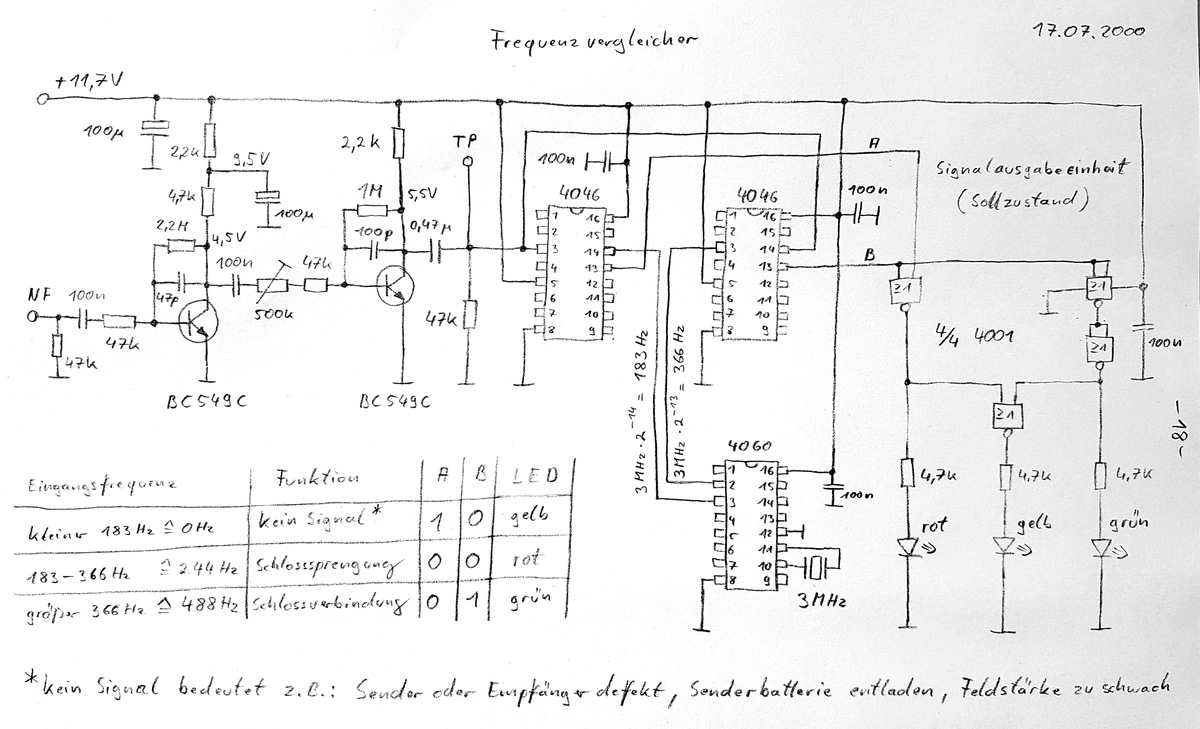 Frequenzvergleicher
17.07.2000
+11,7V
100µ
2,2k
9,5V
4,7k
100µ
2,2M
4,5V
47p
NF
100n
47k
47k
100n
500k
47k
BC549C
2,2k
1M
5,5V
100p
0,47µ
BC549C
TP
47k
100n
4046
1 16
2 15
3 14
4 13
5 12
6 11
7 10
8 9
3MHz·2⁻¹⁴ = 183Hz
3MHz·2⁻¹³ = 366Hz
4046
1 16
2 15
3 14
4 13
5 12
6 11
7 10
8 9
100n
A
B
Signalausgabeeinheit
(Sollzustand)
≥1
≥1
≥1
≥1
4/4 4001
100n
-18-
4060
1 16
2 15
3 14
4 13
5 12
6 11
7 10
8 9
100n
3MHz
4,7k
4,7k
4,7k
rot
gelb
grün
Eingangsfrequenz Funktion A B LED
kleiner 183Hz ≙ 0Hz kein Signal* 1 0 gelb
183–366Hz ≙ 244Hz Schlosssprengung 0 0 rot
größer 366Hz ≙ 488Hz Schlossverbindung 0 1 grün
*kein Signal bedeutet z.B.: Sender oder Empfänger defekt, Senderbatterie entladen, Feldstärke zu schwach